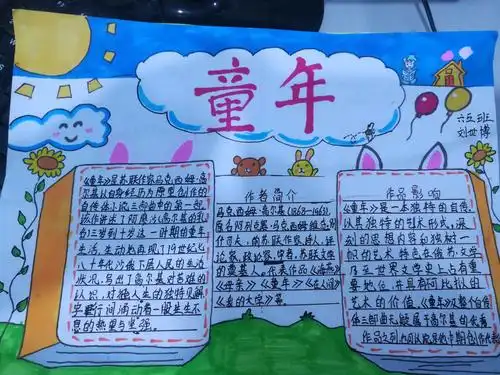 童年
六五班
刘世博
《童年》是苏联作家马克西姆·高
尔基以自身经历为原型创作的
自传体小说三部曲中的第一部
该作讲述了阿廖沙(高尔基的乳
名)三岁到十岁这一时期的童年
生活，生动地再现了19世纪七
八十年代沙俄下层人民的生活
状况，写出了高尔基对苦难的
认识，对社会人生的独特见解
字里行间涌动着一股生生不
息的热望与坚强。
作者简介
马克西姆·高尔基(1868-1936)，
原名阿列克塞·马克西姆维奇·别
什可夫，前苏联作家，诗人，评
论家，政论家，学者，苏联文学
的奠基人。代表作品《海燕》
《母亲》《童年》《在人间》
《我的大学》等。
作品影响
《童年》是一本独特的自传，
以其独特的艺术形式，深
刻的思想内容和独树一
帜的艺术特色在俄苏文学
乃至世界文学史上占有重
要地位，并具有不可比拟的
艺术的价值，《童年》及整个自传
体三部曲无疑属于高尔基的优秀
作品之列